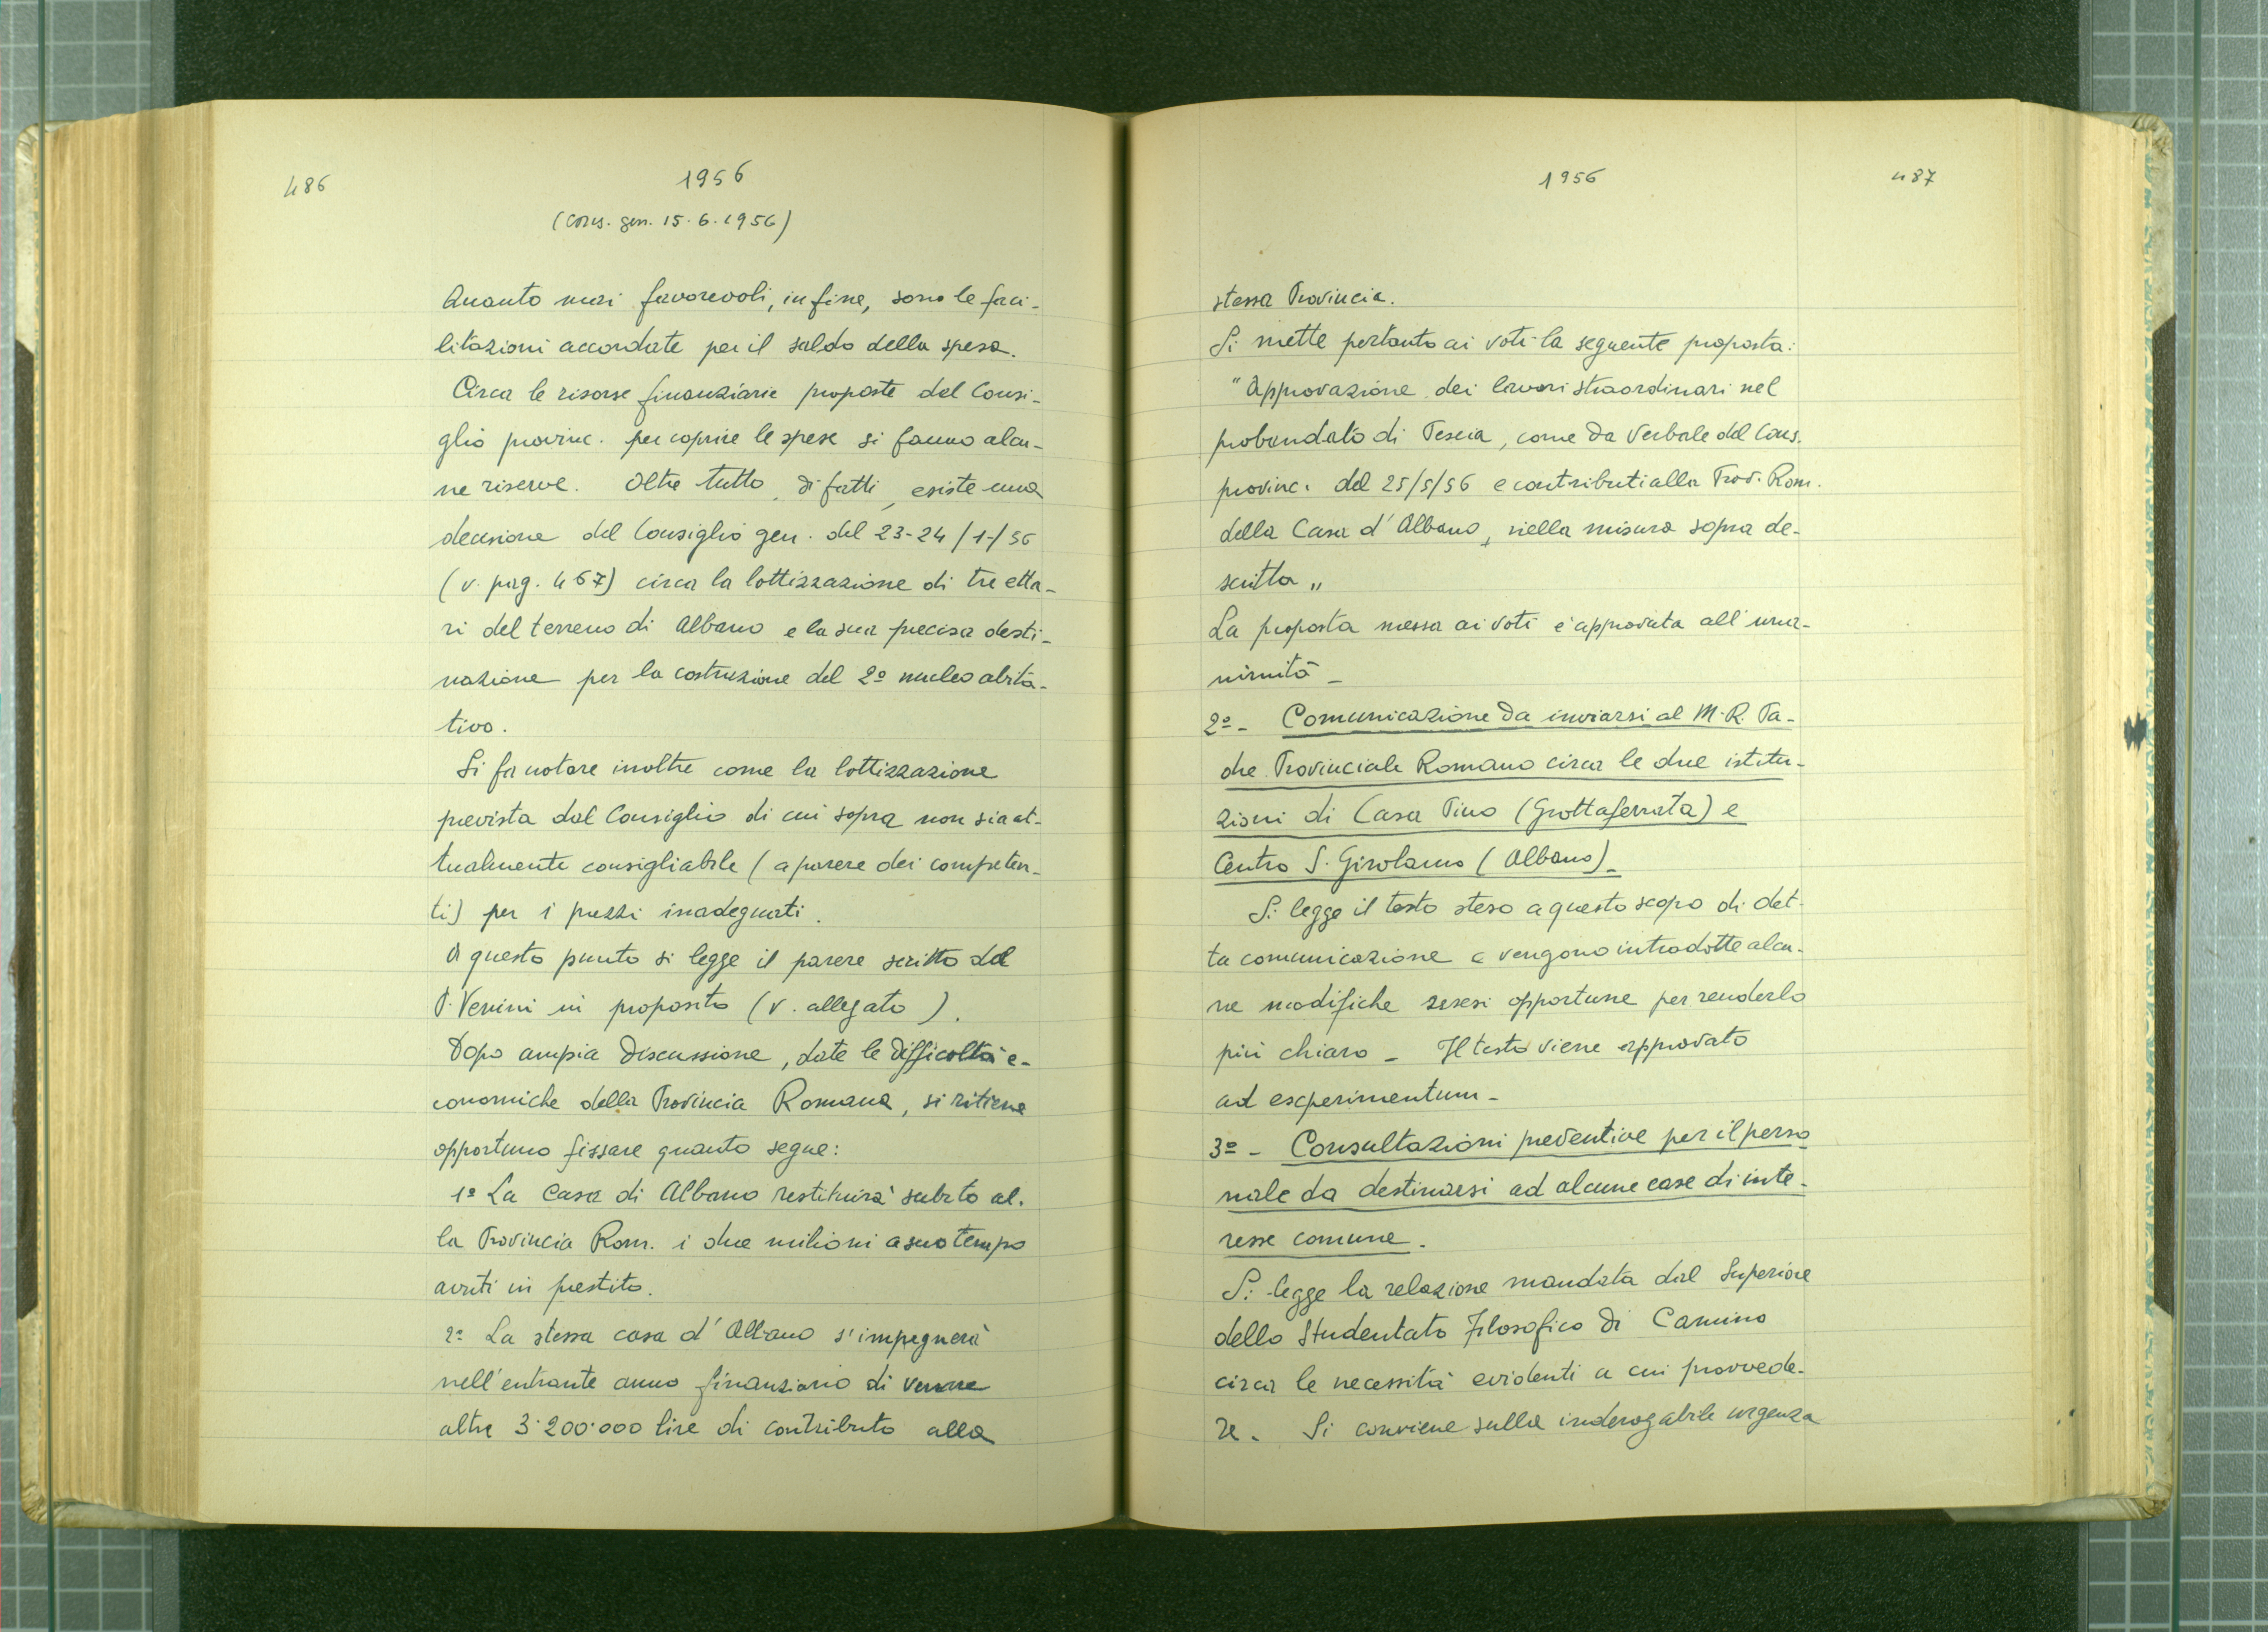 486
1956
(Cons. gen. 15.6.1956)
Quanto mai favorevoli, infine, sono le faci-
litazioni accordate per il saldo della spesa.
Circa le risorse finanziarie proposte dal Consi-
glio provinc. per coprire le spese si fanno alcu-
ne riserve. Oltre tutto, di fatti, esiste una
decisione del Consiglio gen. del 23-24/1-/56
(v. pag. 467) circa la lottizzazione di tre etta-
ri del terreno di Albano e la sua precisa desti-
nazione per la costruzione del 2º nucleo abita-
tivo.
Si fa notare inoltre come la lottizzazione
prevista dal Consiglio di cui sopra non sia at-
tualmente consigliabile (a parere dei competen-
ti) per i prezzi inadeguati.
A questo punto si legge il parere scritto del
P. Venini in proposito (v. allegato).
Dopo ampia discussione, date le difficoltà e-
conomiche della Provincia Romana, si ritiene
opportuno fissare quanto segue:
1º La Casa di Albano restituirà subito al-
la Provincia Rom. i due milioni a suo tempo
avuti in prestito.
2º La stessa casa d'Albano s'impegnerà
nell'entrante anno finanziario di versare
altre 3.200.000 lire di contributo alla
1956
487
stessa Provincia.
Si mette pertanto ai voti la seguente proposta:
"Approvazione dei lavori straordinari nel
probandato di Pescia, come da Verbale del Cons.
provinc. del 25/5/56 e contributi alla Prov. Rom.
della Casa d'Albano, nella misura sopra de-
scritta"
La proposta messa ai voti è approvata all'una-
nimità -
2º - Comunicazione da inviarsi al M.R. Pa-
dre Provinciale Romano circa le due istitu-
zioni di Casa Pino (Grottaferrata) e
Centro S. Girolamo (Albano) -
Si legge il testo steso a questo scopo di det-
ta comunicazione e vengono introdotte alcu-
ne modifiche resesi opportune per renderlo
più chiaro - Il testo viene approvato
ad experimentum -
3º - Consultazioni preventive per il perso
nale da destinarsi ad alcune case di inte-
resse comune.
Si legge la relazione mandata dal Superiore
dello Studentato Filosofico di Camino
circa le necessità evidenti a cui provvede-
re. Si conviene sulla inderogabile urgenza